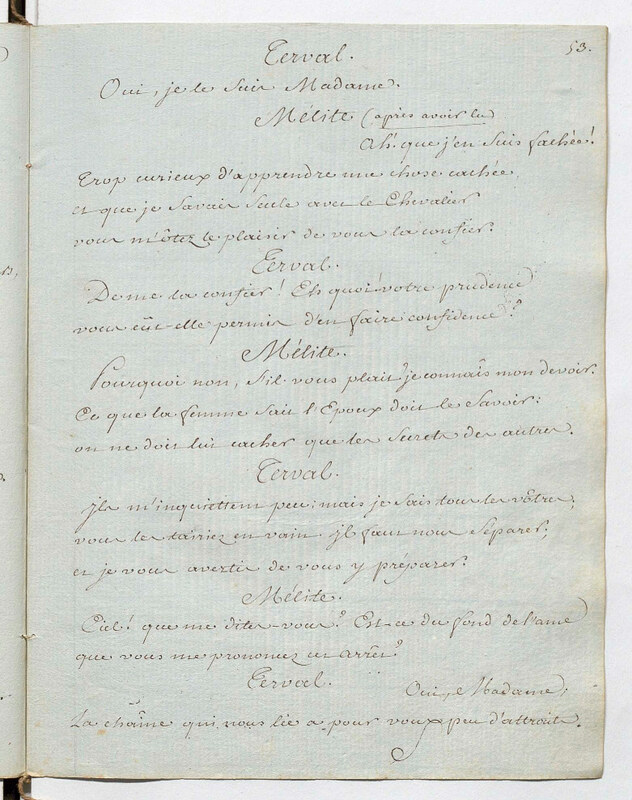 53.
Terval.
Oui, je le suis Madame.
Mélite (après avoir lu)
Ah! que j'en suis fachée!
Trop curieux d'apprendre une chose cachée
et que je savais seule avec le Chevalier
vous m'ôtez le plaisir de vous la confier.
Terval.
De me la confier! Eh quoi! votre prudence
vous eût-elle permis d'en faire confidence?
Mélite.
Pourquoi non, s'il vous plait? je connais mon devoir.
Ce que la femme sait l'Epoux doit le savoir:
on ne doit lui cacher que les secrets des autres.
Terval.
Ils m'inquiettent peu: mais je sais tous les vôtres;
vous les tairiez en vain. il faut nous séparer;
et je vous avertis de vous y préparer.
Mélite.
Ciel! que me dites-vous? Est-ce du fond de l'ame
que vous me prononcez cet arrêt?
Terval.
Oui, Madame;
La chaîne qui nous lie a pour vous peu d'attraits.